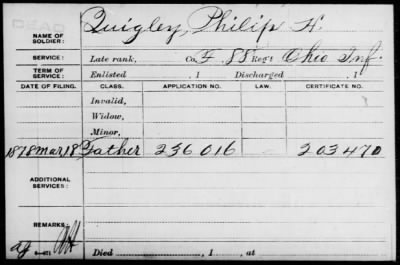 DEAD
Quigley, Philip H.
NAME OF SOLDIER:
SERVICE: Late rank, Co. F, 88 Reg't Ohio Inf.
TERM OF SERVICE: Enlisted , 1 Discharged , 1
DATE OF FILING. CLASS. APPLICATION NO. LAW. CERTIFICATE NO.
Invalid,
Widow,
Minor,
1878 Mar 18 Father 236016 203470
ADDITIONAL SERVICES:
REMARKS:
Died , 1 , at